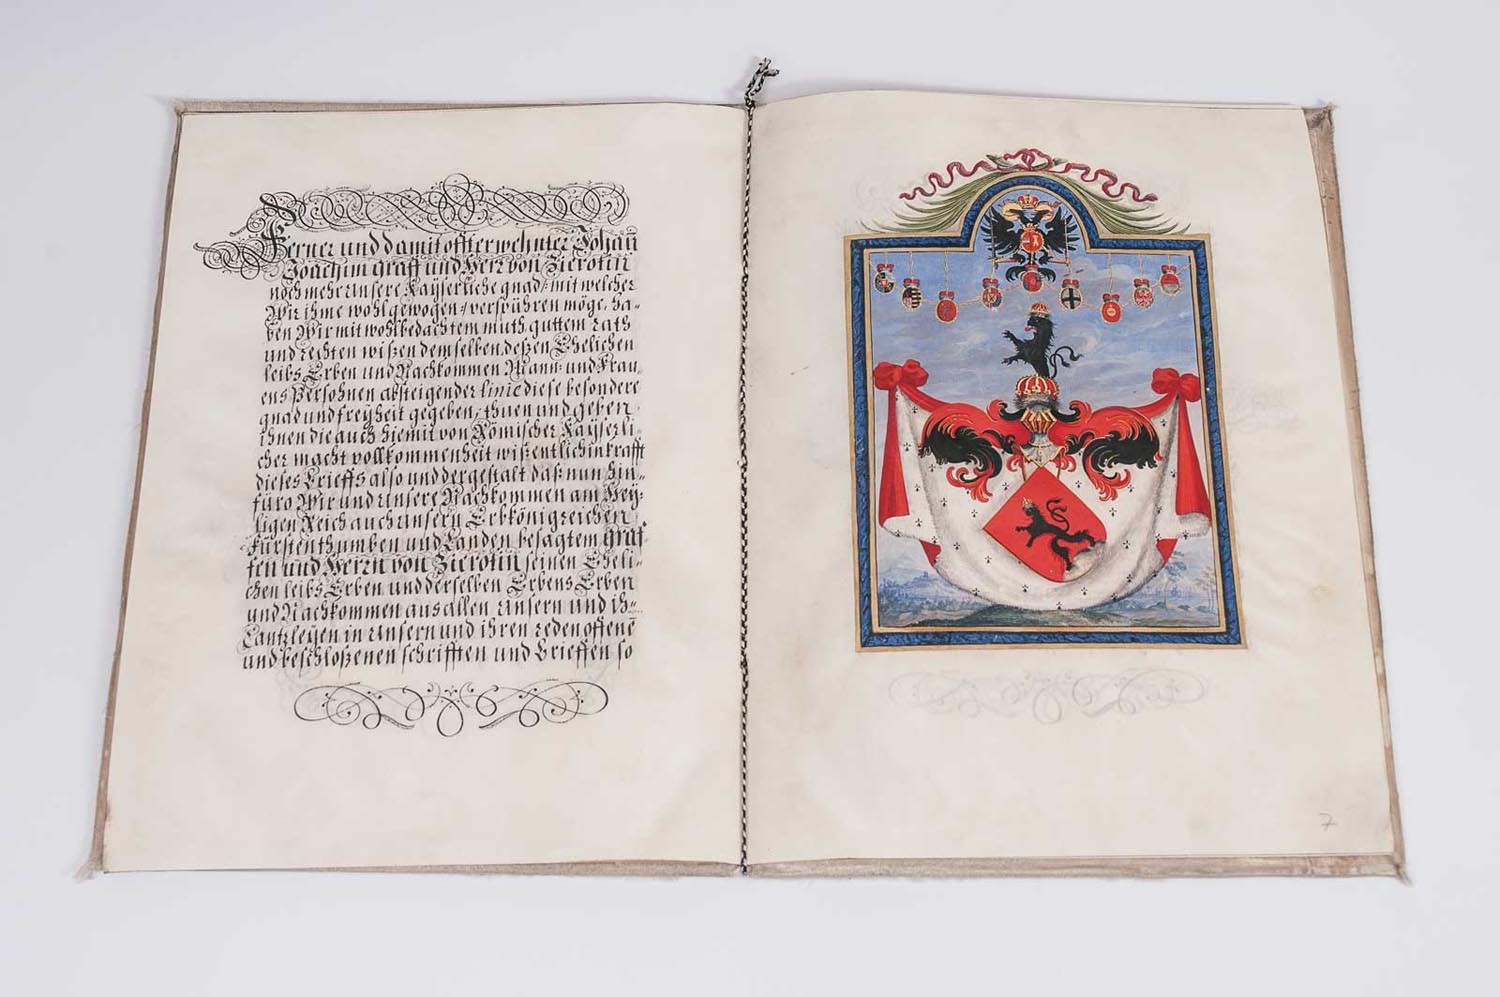 Ferner und damit offterwehnter Johañ
Joachim graff und Herr von Zierotin
noch mehr Unsere Kayserliche gnad, mit welcher
Wir ihme wohl gewogen, verspühren möge, ha-
ben Wir mit wohlbedachtem muth, guttem rath
und rechten wißen demselben, deßen Ehelichen
leibs Erben und Nachkommen Mann- und Frau-
ens Persohnen absteigender linie diese besondere
gnad und freyheit gegeben, thuen und geben
ihnen die auch hiemit von Römischer Kayserli-
cher macht vollkommenheit wißentlich in krafft
dieses Brieffs also und dergestalt daß nun hin-
füro Wir und Unsere Nachkommen am Hey-
ligen Reich auch Unsern Erbkönigreichen
Fürstenthumben und Landen besagtem Graf-
fen und Herrn von Zierotin seinen Eheli-
chen leibs Erben und derselben Erbens Erben
und Nachkommen aus allen Unsern und ih-
Cantzleyen in Unsern und ihren reden offene
und beschloßenen schrifften und Brieffen so
7